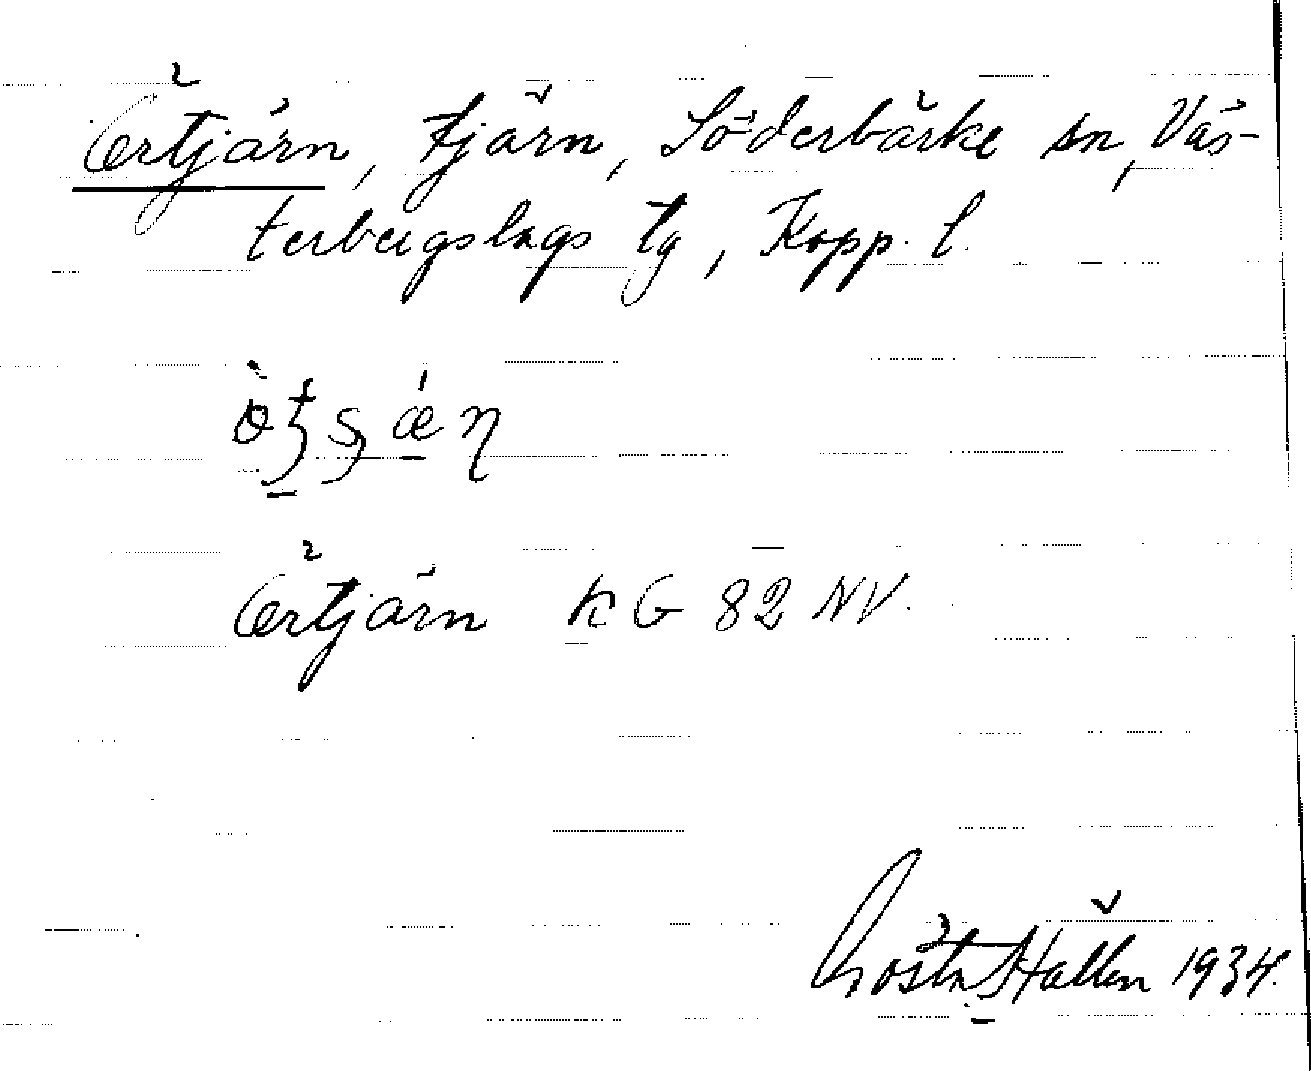 Örtjärn, tjärn, Söderbärke sn, Väs-
terbergslags tg, Kopp. l.
Örtjärn KG 82 NV.
Gösta Hallén 1934.